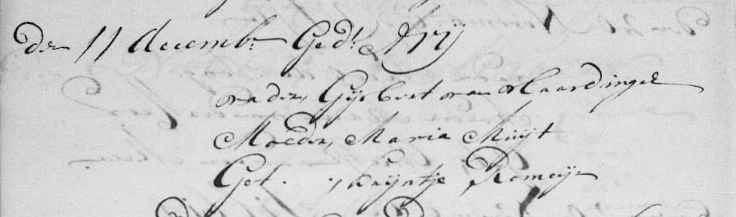 Den 11 decembr Gedt Arij
vader, Gijsbert van vlaardingen
Moeder, Maria Muijt
Get. , Krijntje Romeijn